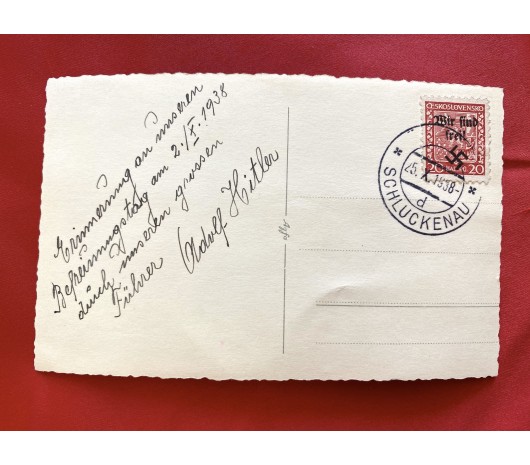 Erinnerung an unseren
Befreiungstag am 2./X. 1938
durch unseren grossen
Führer Adolf Hitler
ČESKOSLOVENSKO
Wir sind
frei!
20 20
25. X. 1938-
d
SCHLUCKENAU